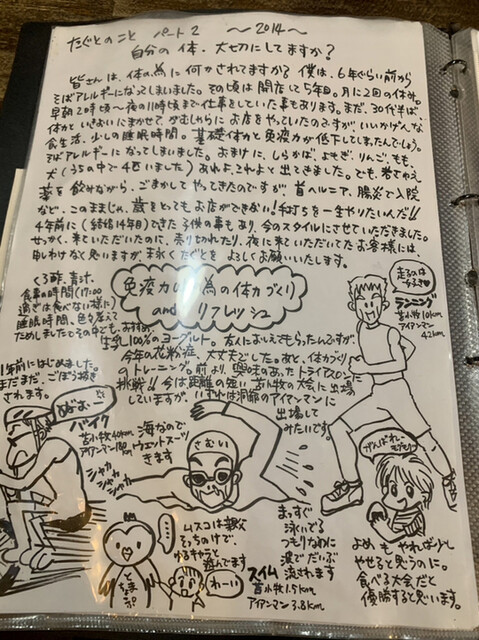 たぐとのこと パート2 〜2014〜
自分の体、大切にしてますか?
皆さんは、体の為に何かされてますか?僕は、6年ぐらい前から
そばアレルギーになってしまいました。その頃は開店して5年目。月に2回の休み。
早朝2時頃〜夜の11時頃まで仕事をしていた事もあります。まだ、30代半ば
体力といきおいにまかせて、がむしゃらにお店をやっていたのですが、いいかげんな
食生活、少しの睡眠時間。基礎体力と免疫力が低下してしまったんでしょう。
そばアレルギーになってしまいました。おまけに、しらかば、よもぎ、りんご、もも、
犬(うちの中で4匹いました)あれよこれよと出てきました。でも、
薬を飲みながら、ごまかしてやってきたのですが、首ヘルニア、腸炎で入院
など、このままじゃ、歳をとってもお店ができない!手打ちを一生やりたいんだ!!
4年前に(結婚14年目)できた子供の事もあり、今のスタイルにさせていただきました。
せっかく、来ていただいたのに、売り切れたり、夜に来ていただいてたお客様には、
申しわけなく思いますが、末永くたぐとを よろしくお願いいたします。
免疫力UPの為の体力づくり
and リフレッシュ
くろ酢、青汁、
食事の時間(17:00
過ぎは食べない様に)
睡眠時間、色々変えて
ためしました。その中でも、おすすめ、
生乳100%のヨーグルト。友人におしえてもらったんですが、
今年の花粉症、大丈夫でした。あと、体力づくり
のトレーニング。前より、興味のあったトライアスロンに
挑戦!!今は距離の短い苫小牧の大会に出場
していますが、いずれは洞爺のアイアンマンに
出場して
みたいです。
走るのは
つらい
ランニング
苫小牧10km
アイアンマン
42km
1年前にはじめました。
まだまだ、ごぼう抜き
されます。
ぬぉー
バイク
苫小牧40km
アイアンマン180km
シャカ
シャカ
シャカ
海なので
ウェットスーツ
きます
さむい
まっすぐ
泳いでる
つもりなのに
波でだいぶ
流されます
スイム
苫小牧1.5km
アイアンマン3.8km
ムスコは親父
そっちのけで、
ゆるキャラと
遊んでます
わーい
がんばれー
よめも やれば少し
やせると思うのに。
食べる大会だと
優勝すると思います。